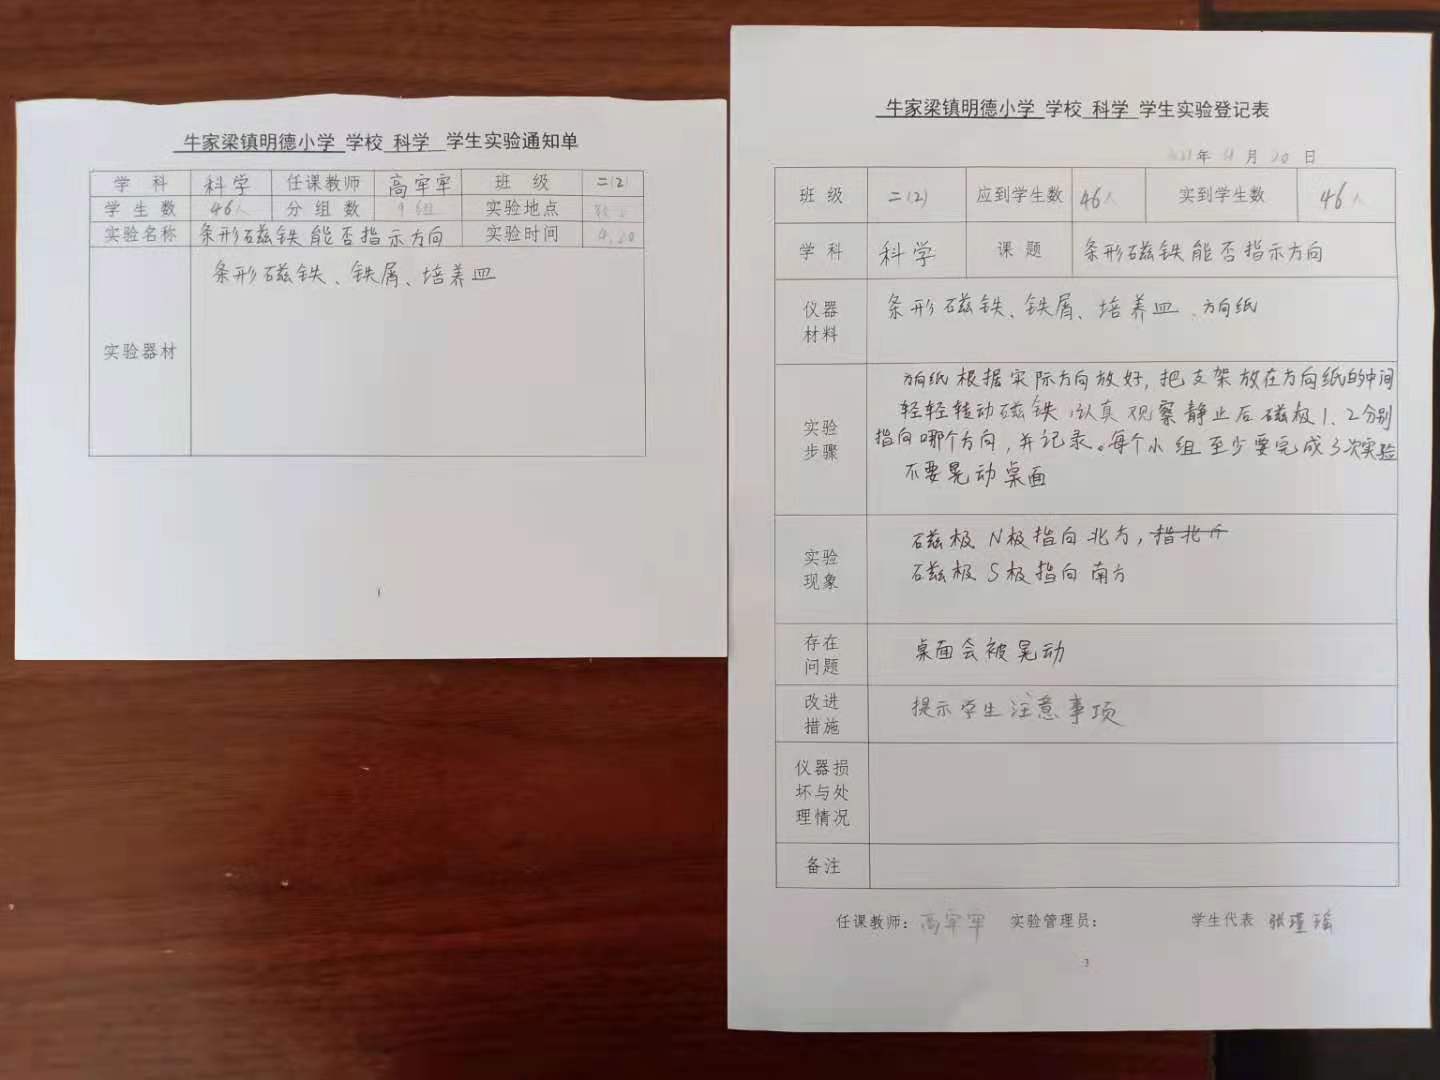 牛家梁镇明德小学 学校 科学 学生实验通知单
学 科 科学 任课教师 高牢牢 班 级 二(2)
学 生 数 46人 分 组 数 9组 实验地点
实验名称 条形磁铁能否指示方向 实验时间 4.20
实验器材 条形磁铁、铁屑、培养皿
1
牛家梁镇明德小学 学校 科学 学生实验登记表
年 4 月 20 日
班 级 二(2) 应到学生数 46人 实到学生数 46人
学 科 科学 课 题 条形磁铁能否指示方向
仪器
材料
条形磁铁、铁屑、培养皿、方向纸
实验
步骤
方向纸根据实际方向放好,把支架放在方向纸的中间
轻轻转动磁铁,认真观察静止后磁极1、2分别
指向哪个方向,并记录。每个小组至少要完成3次实验
不要晃动桌面
实验
现象
磁极N极指向北方,
磁极S极指向南方
存在
问题
桌面会被晃动
改进
措施
提示学生注意事项
仪器损
坏与处
理情况
备注
任课教师: 高牢牢 实验管理员: 学生代表 张瑾瑶
3